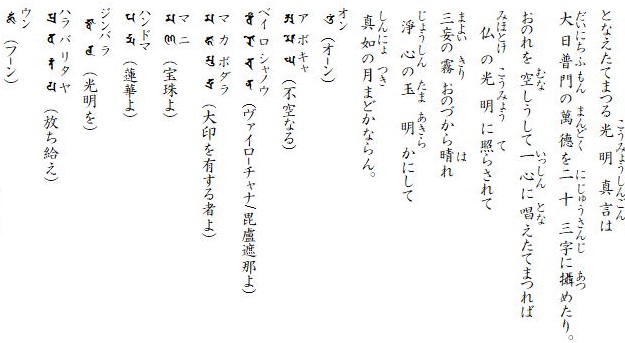 となえたてまつる光明真言は
大日普門の萬徳を二十三字に攝めたり。
おのれを空しうして一心に唱えたてまつれば
仏の光明に照らされて
三妄の霧おのづから晴れ
浄心の玉明かにして
真如の月まどかならん。
オン
(オーン)
アボキャ
(不空なる)
ベイロシャノウ
(ヴァイローチャナ/毘盧遮那よ)
マカボダラ
(大印を有する者よ)
マニ
(宝珠よ)
ハンドマ
(蓮華よ)
ジンバラ
(光明を)
ハラバリタヤ
(放ち給え)
ウン
(フーン)